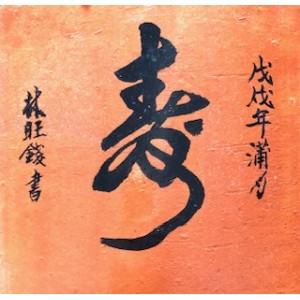 戊戌年蒲月
壽
林旺書